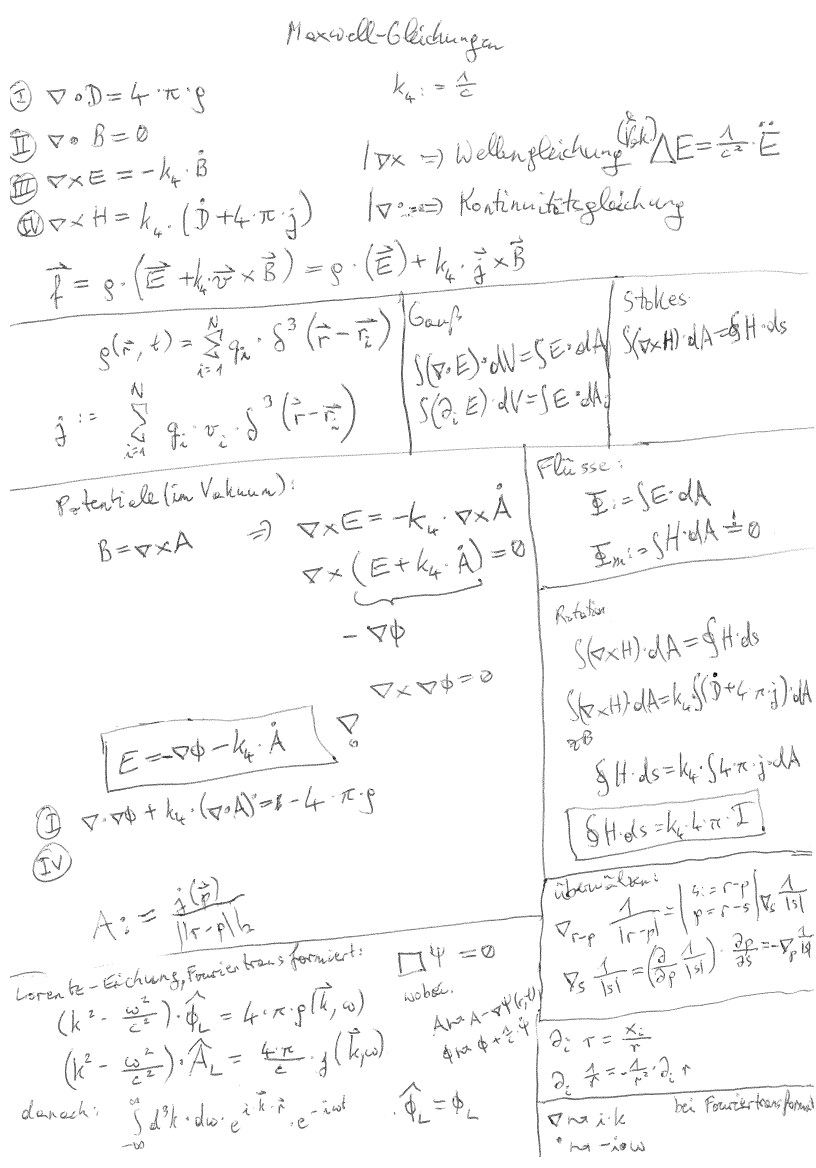 Maxwell-Gleichungen
k₄ := 1/c
Ⓘ ∇∘D = 4·π·ρ
Ⅱ ∇∘B = 0
Ⅲ ∇×E = -k₄·Ḃ |∇× => Wellengleichung (Vak) ΔE = 1/c²·Ë
Ⅳ ∇×H = k₄·(Ḋ+4·π·j) |∇∘ ==> Kontinuitätsgleichung
f⃗ = ρ·(E⃗ + k₄·v⃗×B⃗) = ρ·(E⃗) + k₄·j⃗×B⃗
ρ(r⃗, t) = ∑_{i=1}^N q_i·δ³(r⃗-r⃗_i)
j := ∑_{i=1}^N q_i·v_i·δ³(r⃗-r⃗_i)
Gauß
∫(∇∘E)·dV = ∫E∘dA
∫(∂_i E)·dV = ∫E·dA_i
Stokes
∫(∇×H)·dA = ∮H·ds
Potentiale (im Vakuum):
B = ∇×A => ∇×E = -k₄·∇×Ȧ
∇×(E + k₄·Ȧ) = 0
-∇ϕ
∇×∇ϕ = 0
E = -∇ϕ - k₄·Ȧ
Ⓘ ∇·∇ϕ + k₄·(∇∘A)˙ = -4·π·ρ
Ⅳ
A := j(p⃗)/||r-p||₂
Flüsse:
Φ := ∫E·dA
Φ_m := ∫H·dA =! 0
Rotation
∫(∇×H)·dA = ∮H·ds
∫(∇×H)·dA = k₄·∫(Ḋ+4·π·j)·dA
∮H·ds = k₄·∫4·π·j∘dA
∮H·ds = k₄·4·π·I
überwälzen:
∇_{r-p} 1/|r-p| = |s := r-p p = r-s| ∇_s 1/|s|
∇_s 1/|s| = (∂/∂p 1/|s|)·∂p/∂s = -∇_p 1/|s|
∂_i r = x_i/r
∂_i 1/r = -1/r²·∂_i r
Lorentz-Eichung, Fouriertransformiert:
(k² - ω²/c²)·ϕ̂_L = 4·π·ρ(k⃗, ω)
(k² - ω²/c²)·Â_L = 4·π/c·j(k⃗,ω)
danach: ∫_{-∞}^{∞} d³k·dω·e^{i·k⃗·r⃗}·e^{-iωt} · ϕ̂_L = ϕ_L
□Ψ = 0
wobei
A ↝ A - ∇Ψ(r,t)
ϕ ↝ ϕ + 1/c Ψ̇
∇ ↝ i·k bei Fouriertransformat
˙ ↝ -i∘ω